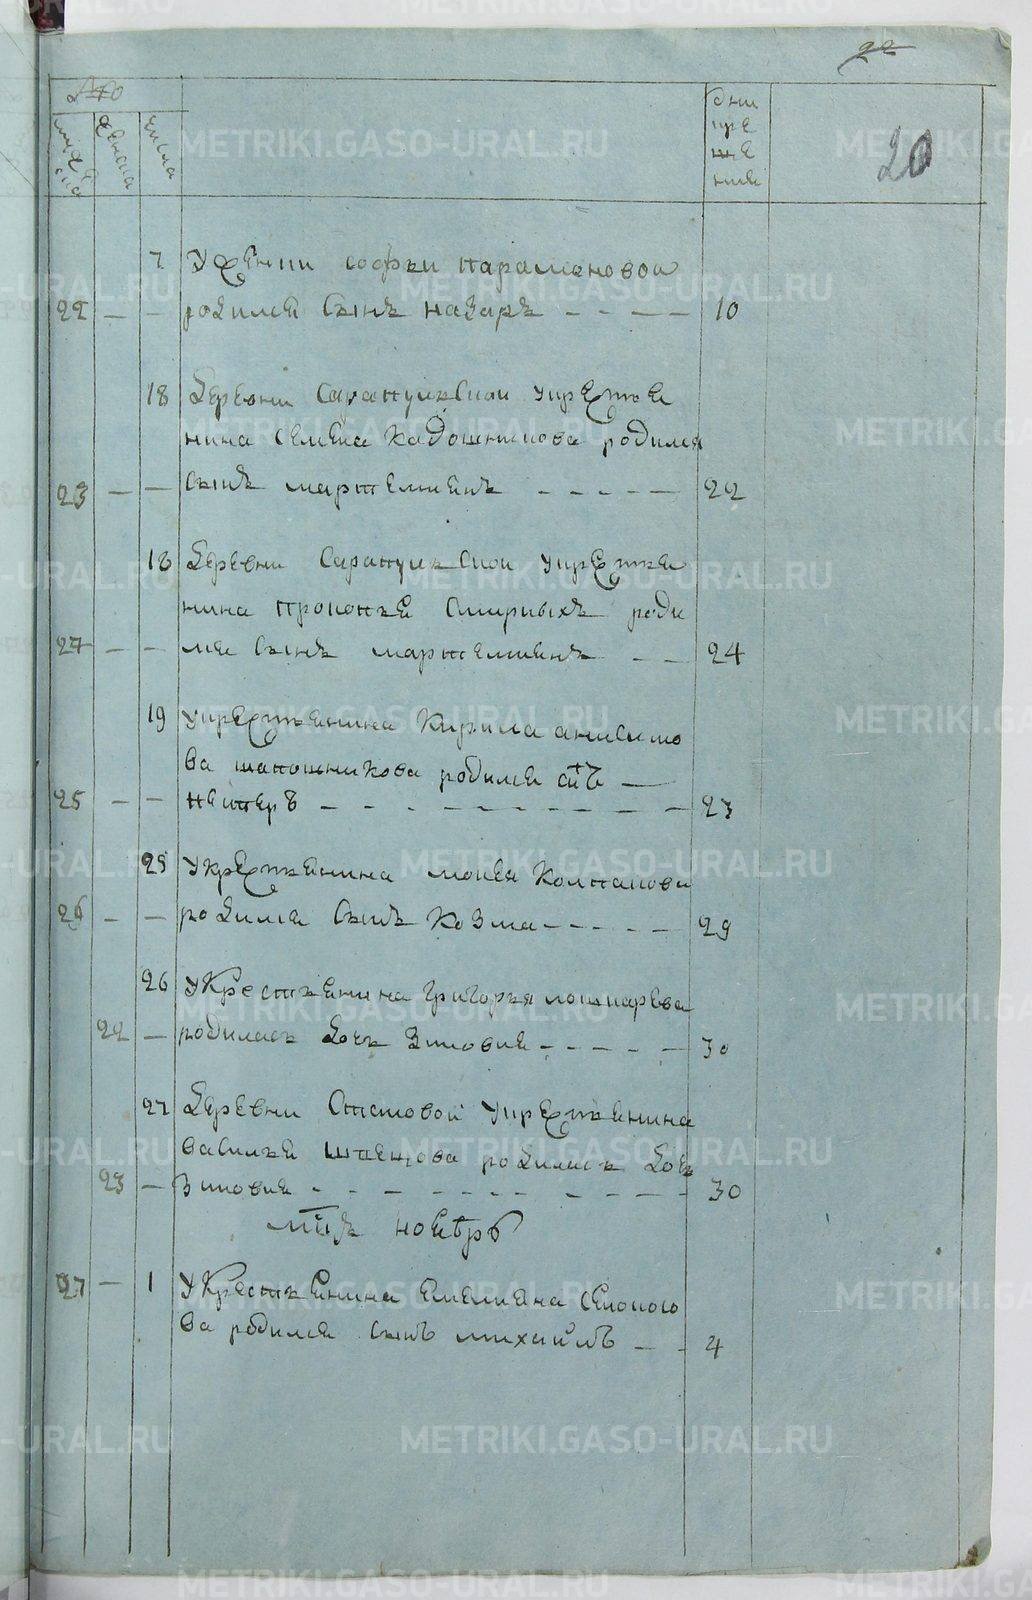 22
20
мужеска
женска
числа
дни
кре
ще
ния
7 У жѣнки софьи парамоновои
22 — — родился сынъ назаръ — — — — 10
18 деревни Сарапулскои укрестья
нина семена кадошникова родился
23 — — сынъ мартемиенъ — — — — 22
18 деревни Сарапулскои укрестья
нина прокопья Смирныхъ роди
27 — — лся сынъ мартемиенъ — — 24
19 укрестьянина кирила анисимо
ва шапошникова родился снъ —
25 — — петеръ — — — — — — — — 23
25 укрестьянина моисея Колпакова
26 — — родился сынъ козма — — — — — 29
26 укрестьянина григорья
22 — родилась дочь Зиновия — — — — — 30
27 деревни укрестьянина
василья родилась дочь
23 — Зиновия — — — — — — — — 30
мцъ ноебрь
27 — 1 укрестьянина емелиена
ва родился сынъ михаилъ — — 4
METRIKI.GASO-URAL.RU